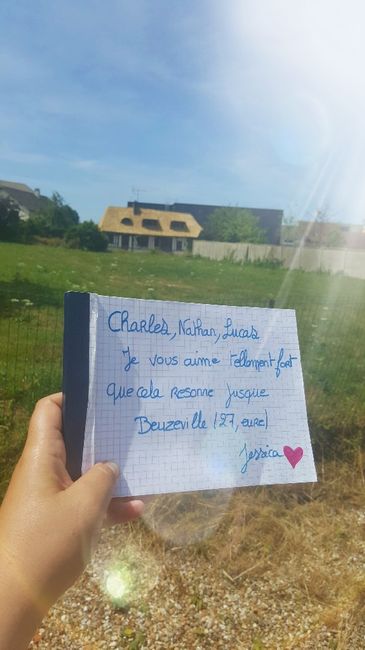 Charles, Nathan, Lucas
Je vous aime tellement fort
que cela resonne jusque
Beuzeville (27, eure)
Jessica